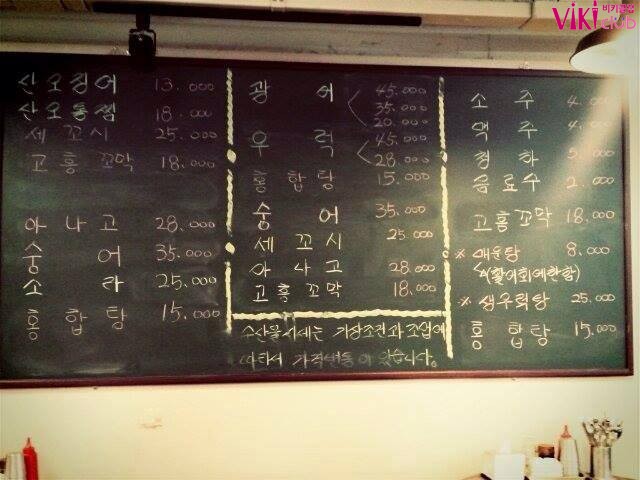 ViKi 비키클럽 club
산오징어 13.000
산오통찜 18.000
세꼬시 25.000
고흥꼬막 18.000
아나고 28.000
숭어 35.000
소라 25.000
홍합탕 15.000
광어 45.000
35.000
20.000
우럭 45.000
28.000
홍합탕 15.000
숭어 35.000
세꼬시 25.000
아나고 28.000
고흥꼬막 18.000
수산물시세는 기상조건과 조업에
따라서 가격변동이 있습니다.
소주 4.000
맥주 4.000
청하 5.000
음료수 2.000
고흥꼬막 18.000
※ 매운탕 8.000
(활어회에한함)
※ 생우럭탕 25.000
홍합탕 15.000